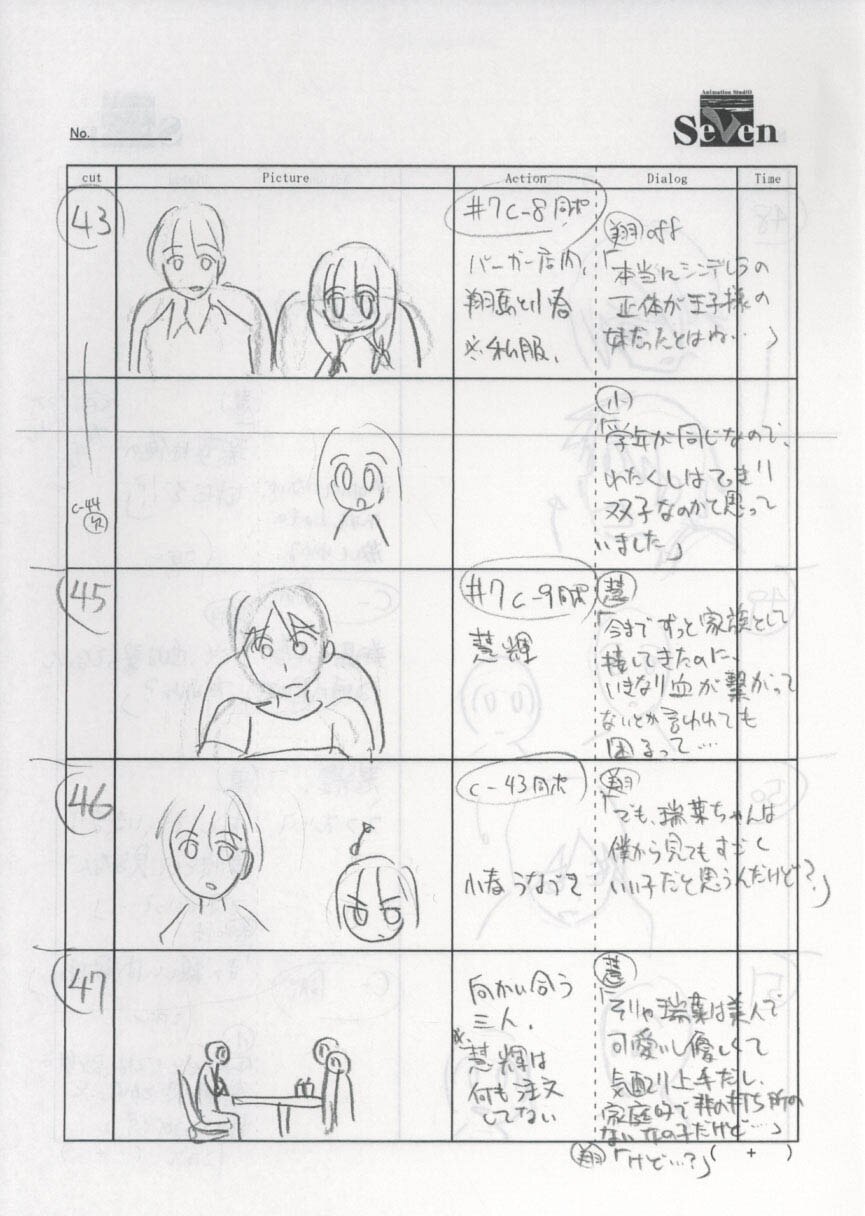 No.
Animation Studio
Seven
cut Picture Action Dialog Time
43
#7 C-8 同ポ
バーガー店内、
翔馬と小春
※私服、
翔 off
「本当にシンデレラの
正体が王子様の
妹だったとはね…」
C-44
欠
小
「学年が同じなので、
わたくしはてっきり
双子なのかと思って
いました」
45
#7 C-9 同ポ
慧輝
慧
「今までずっと家族として
接してきたのに、
いきなり血が繋がって
ないとか言われても
困るって…
46
C-43 同ポ
小春 うなづき
翔
「でも、瑞葉ちゃんは
僕から見てもすごく
いい子だと思うんだけど?」
47
向かい合う
三人、
※慧輝は
何も注文
してない
慧
「そりゃ瑞葉は美人で
可愛いし優しくて
気配り上手だし、
家庭的で非の打ち所の
ない女の子だけど…」
翔「けど…?」
( + )